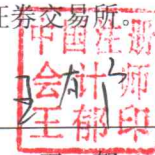 证券交易所。
中国注册
会计师
王郁印